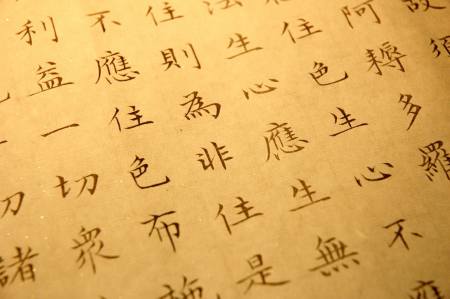 須
阿耨多羅
住色生心不
法生心應生無
住則為非住是
不應住色布施
利益一切眾
切諸